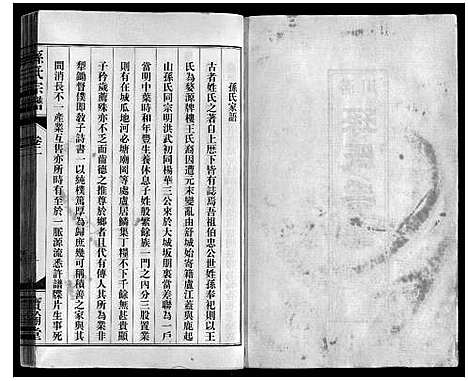 孫氏家語
古者姓氏之著自上歷下皆有誌焉吾祖伯忠公世姓孫奉祀則以王
氏為婺源樓王氏裔因遭元末變亂由城始寄籍盧江蓋與鹿起
山孫氏同宗明洪武初同楊華三公來於大城坂朋裏當差聯為一戶
當明中葉時和年豐生養休息子姓殷繁餘族一門之內分三股置業
則有在城瓜地河必塘廟岡等處盧居鱗集丁糧不下千餘無甚貴顯
子矜歲薦殊亦不乏面齒德之推尊於鄉者且代有傳人其所為業非
犂鋤督僕即教子詩書一以純樸篤厚為歸庶幾可稱積善之家與其
間消長不一產業互售亦所時有至於一脈源流悉詳譜牒片生事死
孫氏宗譜
卷一
堂